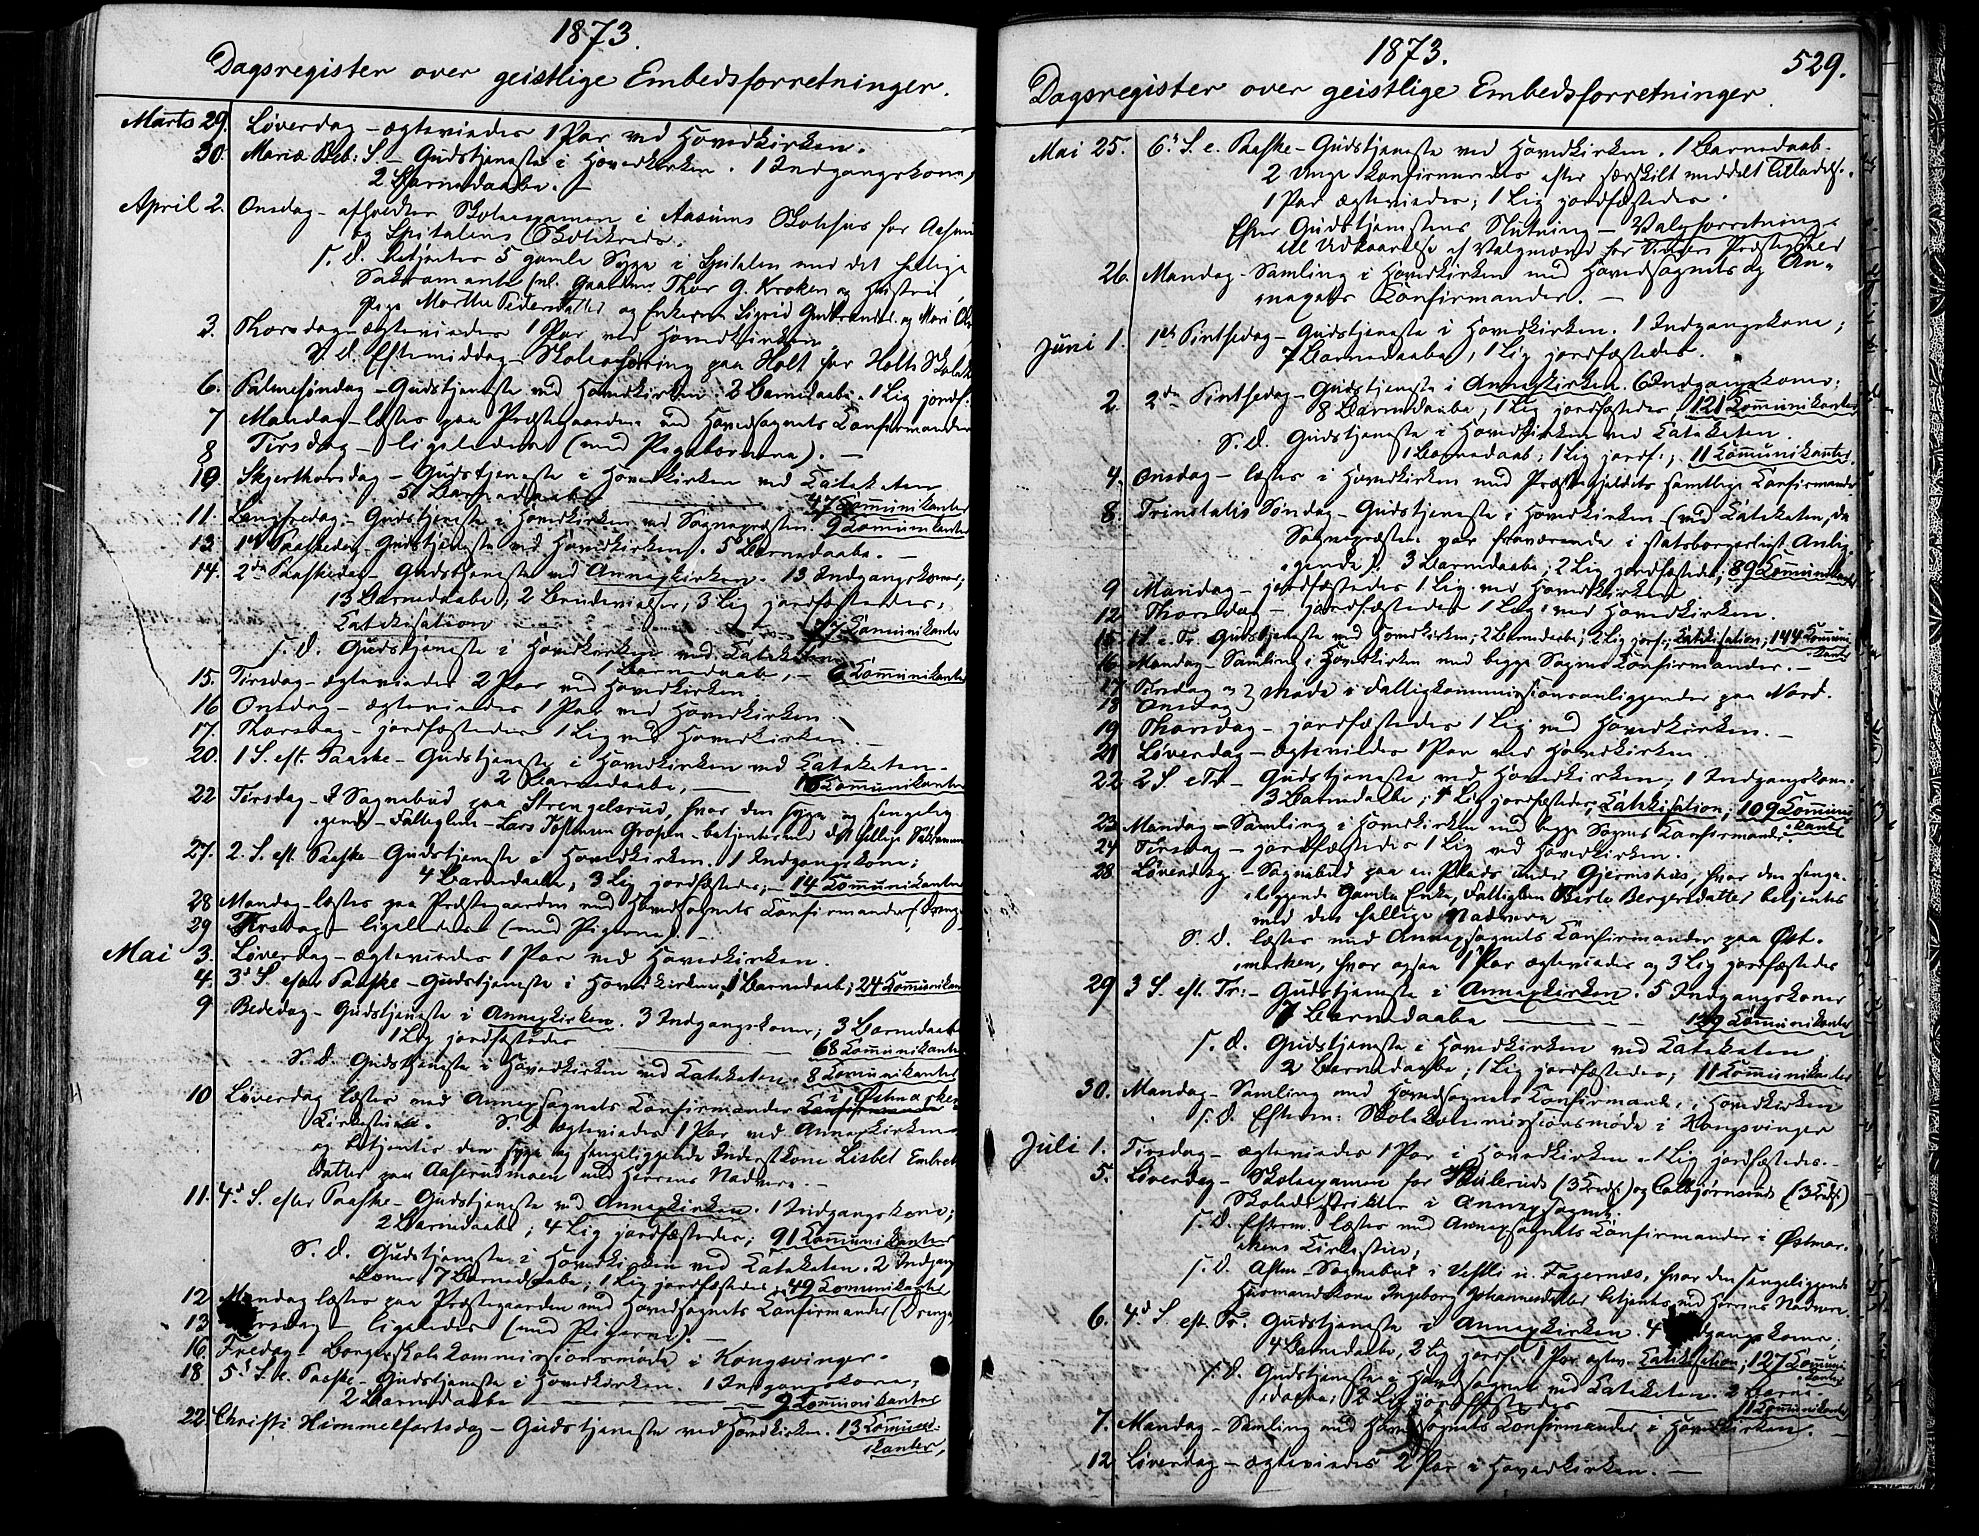 1873.
Dagsregister over geistlige Embedsforretninger.
Marts 29. Løverdag – ægteviedes 1 Par ved Hovedkirken.
30. Mariæ Beb: S. – Gudstjeneste i Hovedkirken. 1 Indgangskone,
2 Barnedaabe. –
April 2. Onsdag – afholdtes Skoleexamen i Aasums Skolehus for
og Spitalens Skolekreds.
S. D. betjentes 5 gamle Syge i Spitalen med det hellige
Sakramente Thor G. Kroken og
Pige Marthe Pedersdatter og Enkerne Sigrid og Mari
3. Thorsdag – ægteviedes 1 Par ved Hovedkirken
S. D. Eftermiddag – Skole paa Holt for Holts
6. Palmesøndag – Gudstjeneste ved Hovedkirken. 2 Barnedaabe. 1 Lig jordf.
7 Mandag – læstes paa Præstegaarden med Hovedsognets Konfirmander
8 Tirsdag – ligeledes (med Pigebørnene). –
10 Skjerthorsdag – Gudstjeneste i Hovedkirken ved Kateketen
5 Barnedaabe 47 Kommunikanter
11. Langfredag – Gudstjeneste i Hovedkirken ved Sognepræsten. 9 Kommunikanter
13. 1ste Paaskedag – Gudstjeneste ved Hovedkirken. 5 Barnedaabe. –
14. 2den Paaskedag – Gudstjeneste ved Annexkirken. 13 Indgangskoner;
13 Barnedaabe, 2 Brudevielser, 3 Lig jordfæstedes,
Katekisation Kommunikanter
S. D. Gudstjeneste i Hovedkirken ved Kateketen
1 Barnedaab, – 6 Kommunikanter
15. Tirsdag – ægteviedes 2 Par ved Hovedkirken
16 Onsdag – ægteviedes 1 Par ved Hovedkirken.
17. Thorsdag – jordfæstedes 1 Lig ved Hovedkirken. –
20. 1 S. eft. Paaske – Gudstjeneste i Hovedkirken ved Kateketen –
2 Barnedaabe, – 16 Kommunikanter
22 Tirsdag – I Sognebud paa Strengelsrud, hvor den syge og sengelig
gende – Fattiglem – Lars Grosen – betjentes med det hellige
27. 2. S. eft. Paaske – Gudstjeneste i Hovedkirken. 1 Indgangskone;
4 Barnedaabe, 3 Lig jordfæstedes, – 14 Kommunikanter
28 Mandag – læstes paa Præstegaarden med Hovedsognets Konfirmander (Dreng
29 Tirsdag – ligeledes (med Pigerne). –
Mai 3. Løverdag – ægteviedes 1 Par ved Hovedkirken.
4. 3d S. efter Paaske – Gudstjeneste i Hovedkirken, 1 Barnedaab; 24 Kommunikan
9 Bededag – Gudstjeneste i Annexkirken. 3 Indgangskoner; 3 Barnedaab
1 Lig jordfæstedes 68 Kommunikanter
S. D. Gudstjeneste i Hovedkirken ved Kateketen. 8 Kommunikanter
10 Løverdag læstes med Annexsognets Konfirmander i Østmarkens
Kirkestue. S. D. ægteviedes 1 Par ved Annexkirken
og betjentes den syge og sengeliggende Inderstkone Lisbet Embrets
datter paa Aaserudmoen med Herrens Nadvere. –
11. 4d S. efter Paaske – Gudstjeneste ved Annexkirken. 1 Indgangskone;
2 Barnedaabe; 4 Lig jordfæstedes; 91 Kommunikanter
S. D. Gudstjeneste i Hovedkirken ved Kateketen. 2 Indgangs
koner, 7 Barnedaabe; 1 Lig jordfæstedes, 49 Komunikanter
12 Mandag læstes paa Præstegaarden med Hovedsognets Konfirmander (Drenge
13 Tirsdag – ligeledes (med Pigerne). –
16. Fredag – Borgerskolekommissionsmøde i Kongsvinger.
18 5d S. e. Paaske – Gudstjeneste i Hovedkirken. 1 Indgangskone;
2 Barnedaabe 9 Kommunikanter
22. Christi Himmelfartsdag – Gudstjeneste ved Hovedkirken. 13 Kommuni-
kanter,
1873. 529.
Dagsregister over geistlige Embedsforretninger.
Mai 25. 6d S. e. Paaske – Gudstjeneste ved Hovedkirken. 1 Barnedaab.
2 Unge Konfirmeredes efter særskilt meddelt Tilladelse.
1 Par ægteviedes; 1 Lig jordfæstedes.
Efter Gudstjenestens Slutning – Valgforretning
til Udkaarelse af Valgmænd for Vingers Præstegjeld
26. Mandag – Samling i Hovedkirken med Hovedsognets og An-
nexets Konfirmander. –
Juni 1. 1ste Pintsedag – Gudstjeneste i Hovedkirken. 1 Indgangskone;
7 Barnedaabe, 1 Lig jordfæstedes.
2. 2den Pintsedag – Gudstjeneste i Annexkirken. 6 Indgangskoner;
8 Barnedaabe, 1 Lig jordfæstedes. 121 Kommunikanter
S. D. Gudstjeneste i Hovedkirken ved Kateketen.
1 Barnedaab; 1 Lig jordf.; 11 Kommunikanter.
4. Onsdag – læstes i Hovedkirken med Præstegjeldets samtlige Konfirmander
8. Trinitatis Søndag – Gudstjeneste i Hovedkirken – (ved Kateketen, da
Sognepræsten var fraværende i statsborgerligt Anlig-
gende). 3 Barnedaabe; 2 Lig jordfæstedes; 89 Kommunikanter
9 Mandag – jordfæstedes 1 Lig ved Hovedkirken
12 Thorsdag – jordfæstedes 1 Lig ved Hovedkirken.
15. 1 S. e. Tr. Gudstjeneste ved Hovedkirken; 2 Barnedaabe; 2 Lig jordf.; Katekisation; 144 Kommuni-
kanter
16. Mandag – Samling i Hovedkirken med begge Sognes Konfirmander. –
17 Tirsdag og } Møde i Fattigkommissionsanliggender paa Nord.
18 Onsdag }
19 Thorsdag – jordfæstedes 1 Lig ved Hovedkirken. –
21 Løverdag – ægteviedes 1 Par ved Hovedkirken.
22 2 S. e Tr – Gudstjeneste ved Hovedkirken; 1 Indgangskone.
3 Barnedaabe; 4 Lig jordfæstedes; Katekisation; 109 Kommuni-
kanter
23 Mandag – Samling i Hovedkirken med begge Sognes Konfirmander.
24 Tirsdag – jordfæstedes 1 Lig ved Hovedkirken.
28 Løverdag – Sognebud paa en Plads under Gjermshus, hvor den senge-
liggende gamle Enke, Fattiglem Berte Bergersdatter betjentes
med den hellige Nadvere
S. D. læstes med Annexsognets Konfirmander paa Øst-
marken, hvor ogsaa 1 Par ægteviedes og 3 Lig jordfæstedes
29 3 S. eft. Tr: – Gudstjeneste i Annexkirken. 5 Indgangskoner
7 Barnedaabe Kommunikanter
S. D. Gudstjeneste i Hovedkirken ved Kateketen
2 Barnedaabe; 1 Lig jordfæstedes; 11 Kommunikanter
30. Mandag – Samling med Hovedsognets Konfirmand. i Hovedkirken
S. D. Efterm: Skolekommissionsmøde i Kongsvinger
Juli 1. Tirsdag – ægteviedes 1 Par i Hovedkirken. 1 Lig jordfæstedes. –
5. Løverdag – Skoleexamen for (3 Kreds) og Colbjørnsruds (3 Kreds)
Skoledistrikter i Annexsognet.
S. D. Efterm. læstes med Annexsognets Konfirmander i Østmar-
kens Kirkestue;
S. D. Aften – Sognebud i Vestli u. Fagernæs, hvor den sengeliggende
Husmandskone Ingeborg Johannesdatter betjentes med Herrens Nadvere.
6. 4d S. eft. Tr. Gudstjeneste i Annexkirken. 4 Indgangskoner.
4 Barnedaabe, 2 Lig jordf. 1 Par ægtev. Katekisation; 127 Kommuni-
kanter
S. D. Gudstjeneste i Hovedsognet ved Kateketen. 2 Barne-
daabe; 2 Lig jordfæstedes 11 Kommunikanter
7. Mandag – Samling med Hovedsognets Konfirmander i Hovedkirken. –
12. Løverdag – ægteviedes 2 Par i Hovedkirken. –